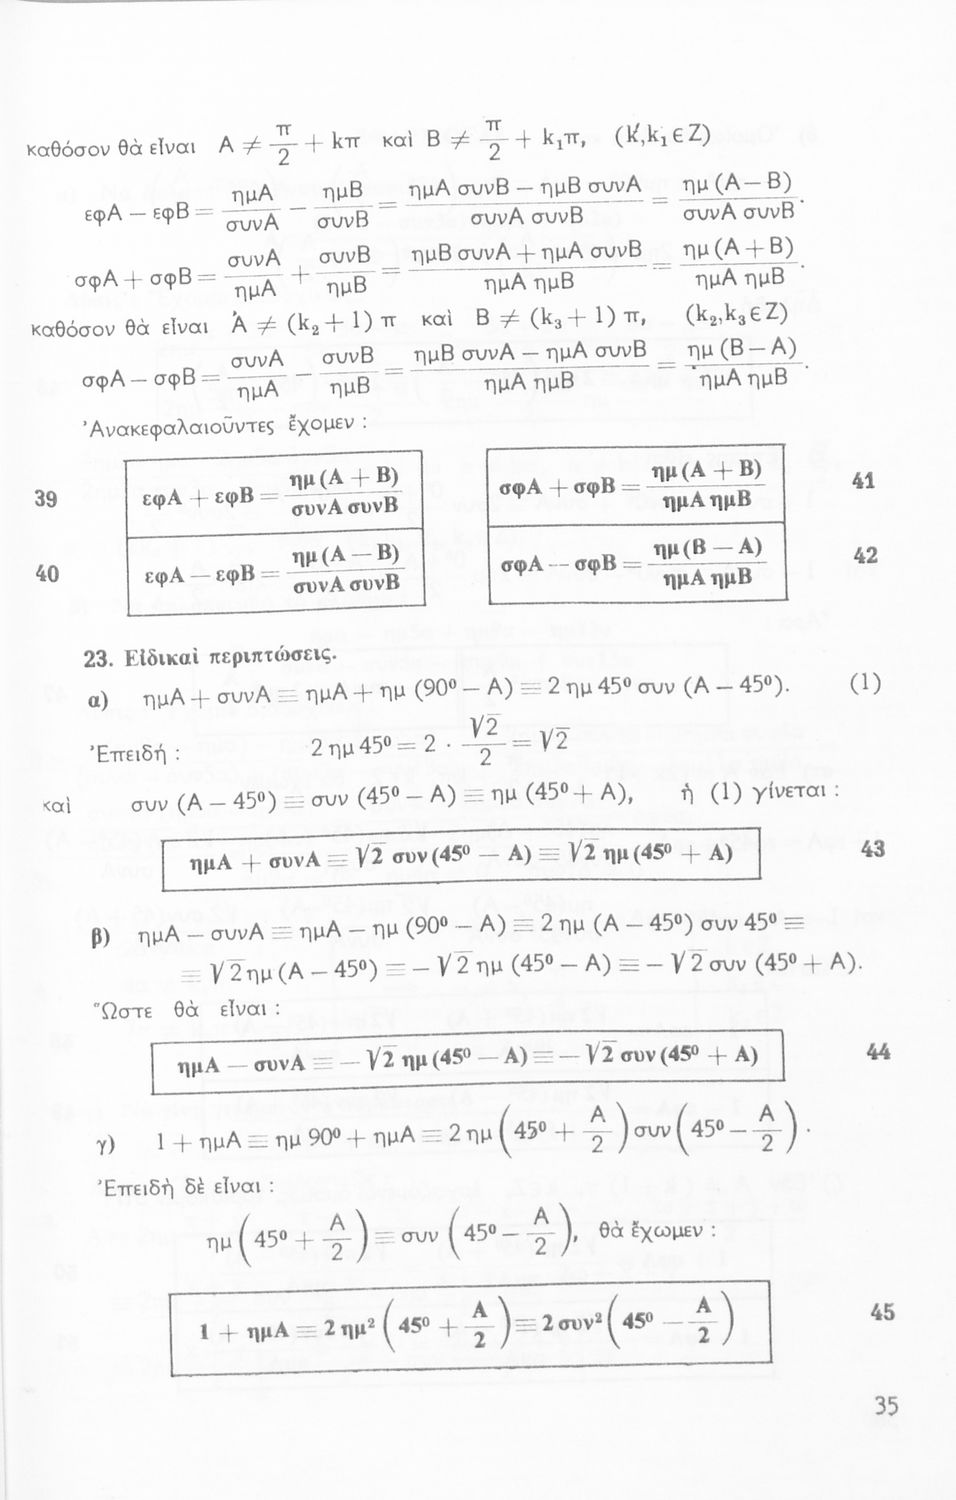 καθόσον θὰ εἶναι A ≠ π/2 + kπ καὶ B ≠ π/2 + k₁π, (k,k₁ ∈ Z)
εφA — εφB = ημA/συνA — ημB/συνB = (ημA συνB — ημB συνA)/(συνA συνB) = ημ (A — B)/(συνA συνB).
σφA + σφB = συνA/ημA + συνB/ημB = (ημB συνA + ημA συνB)/(ημA ημB) = ημ (A + B)/(ημA ημB).
καθόσον θὰ εἶναι A ≠ (k₂ + 1) π καὶ B ≠ (k₃ + 1) π, (k₂,k₃ ∈ Z)
σφA — σφB = συνA/ημA — συνB/ημB = (ημB συνA — ημA συνB)/(ημA ημB) = ημ (B — A)/(ημA ημB).
Ἀνακεφαλαιοῦντες ἔχομεν :
39 εφA + εφB = ημ (A + B)/(συνA συνB)
σφA + σφB = ημ (A + B)/(ημA ημB) 41
40 εφA — εφB = ημ (A — B)/(συνA συνB)
σφA — σφB = ημ (B — A)/(ημA ημB) 42
23. Εἰδικαὶ περιπτώσεις.
α) ημA + συνA ≡ ημA + ημ (90⁰ — A) ≡ 2 ημ 45⁰ συν (A — 45⁰). (1)
Ἐπειδή : 2 ημ 45⁰ = 2 · √2/2 = √2
καὶ συν (A — 45⁰) ≡ συν (45⁰ — A) ≡ ημ (45⁰ + A), ἡ (1) γίνεται :
ημA + συνA ≡ √2 συν (45⁰ — A) ≡ √2 ημ (45⁰ + A) 43
β) ημA — συνA ≡ ημA — ημ (90⁰ — A) ≡ 2 ημ (A — 45⁰) συν 45⁰ ≡
≡ √2 ημ (A — 45⁰) ≡ — √2 ημ (45⁰ — A) ≡ — √2 συν (45⁰ + A).
Ὥστε θὰ εἶναι :
ημA — συνA ≡ — √2 ημ (45⁰ — A) ≡ — √2 συν (45⁰ + A) 44
γ) 1 + ημA ≡ ημ 90⁰ + ημA ≡ 2 ημ (45⁰ + A/2) συν (45⁰ — A/2).
Ἐπειδὴ δὲ εἶναι :
ημ (45⁰ + A/2) ≡ συν (45⁰ — A/2), θὰ ἔχωμεν :
1 + ημA ≡ 2 ημ² (45⁰ + A/2) ≡ 2 συν² (45⁰ — A/2) 45
35